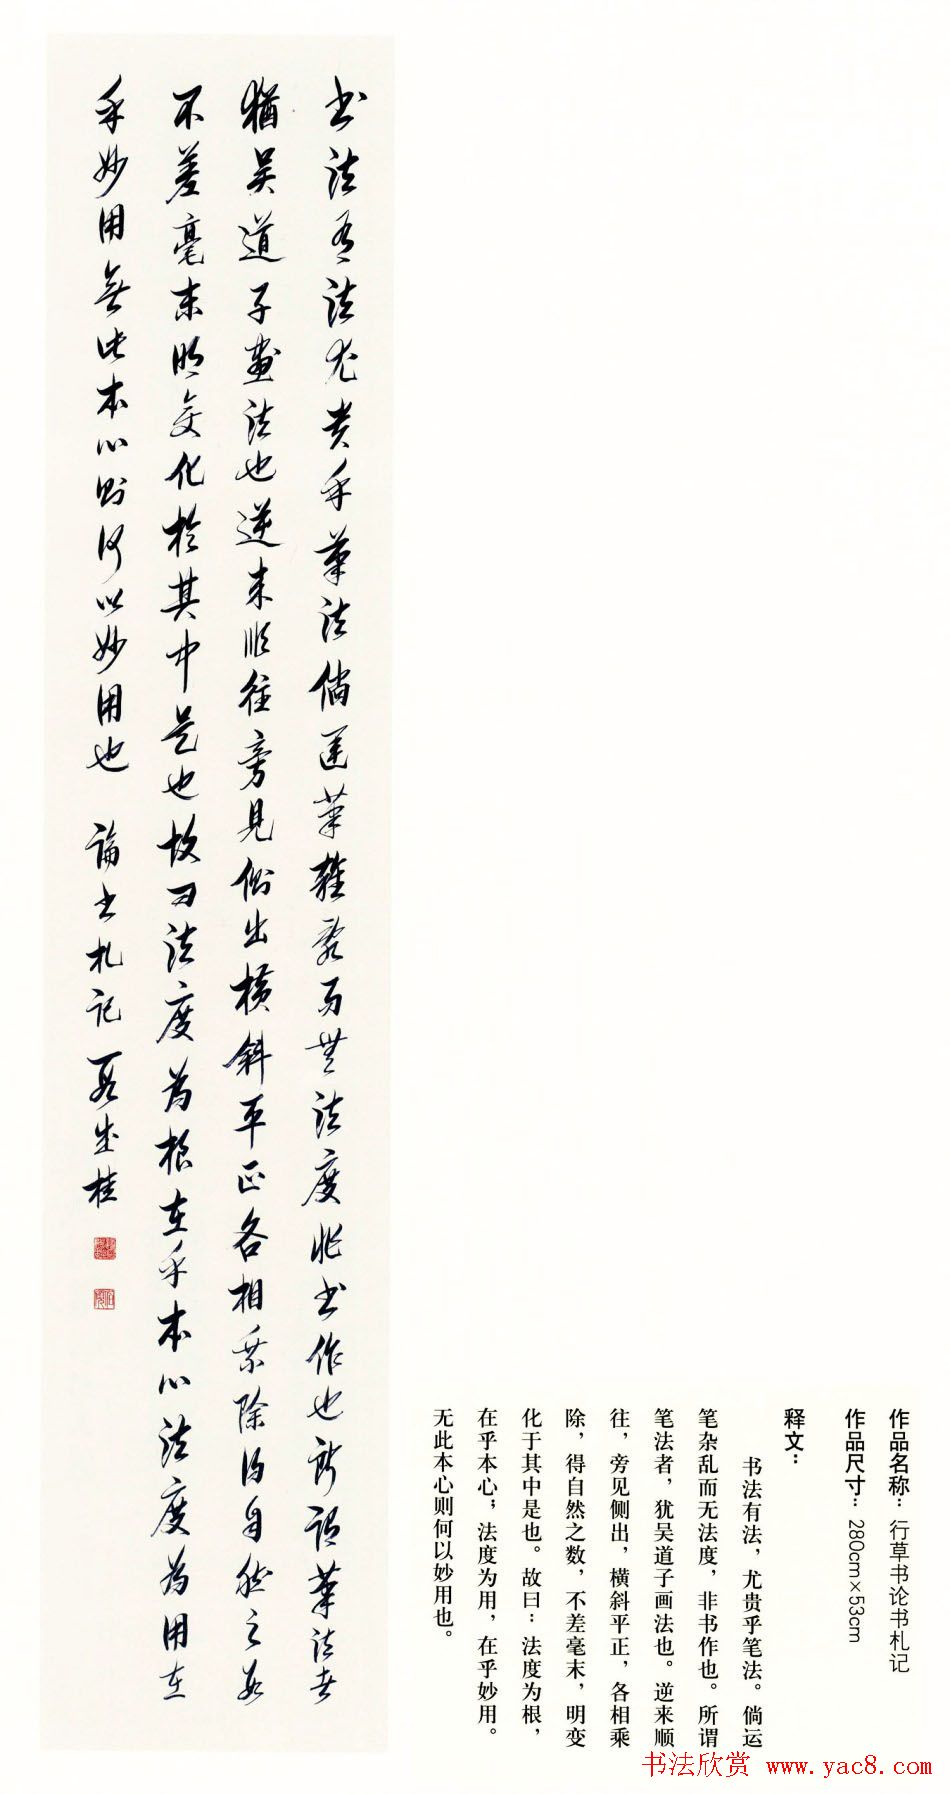 作品名称：行草书论书札记
作品尺寸：280cm×53cm
释文：
书法有法，尤贵乎笔法。倘运
笔杂乱而无法度，非书作也。所谓
笔法者，犹吴道子画法也。逆来顺
往，旁见侧出，横斜平正，各相乘
除，得自然之数，不差毫末，明变
化于其中是也。故曰：法度为根，
在乎本心；法度为用，在乎妙用。
无此本心则何以妙用也。
書法有法尤貴乎筆法倘運筆雜亂而無法度非書作也所謂筆法者
猶吳道子畫法也逆來順往旁見側出橫斜平正各相乘除得自然之數
不差毫末明變化於其中是也故曰法度為根在乎本心法度為用在
乎妙用無此本心則何以妙用也 論書札記 段成桂
书法欣赏 www.yac8.com